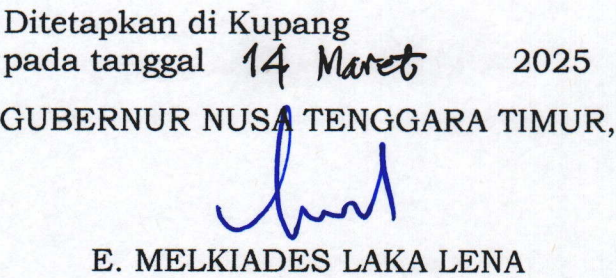 Ditetapkan di Kupang
pada tanggal 14 Maret 2025
GUBERNUR NUSA TENGGARA TIMUR,
E. MELKIADES LAKA LENA